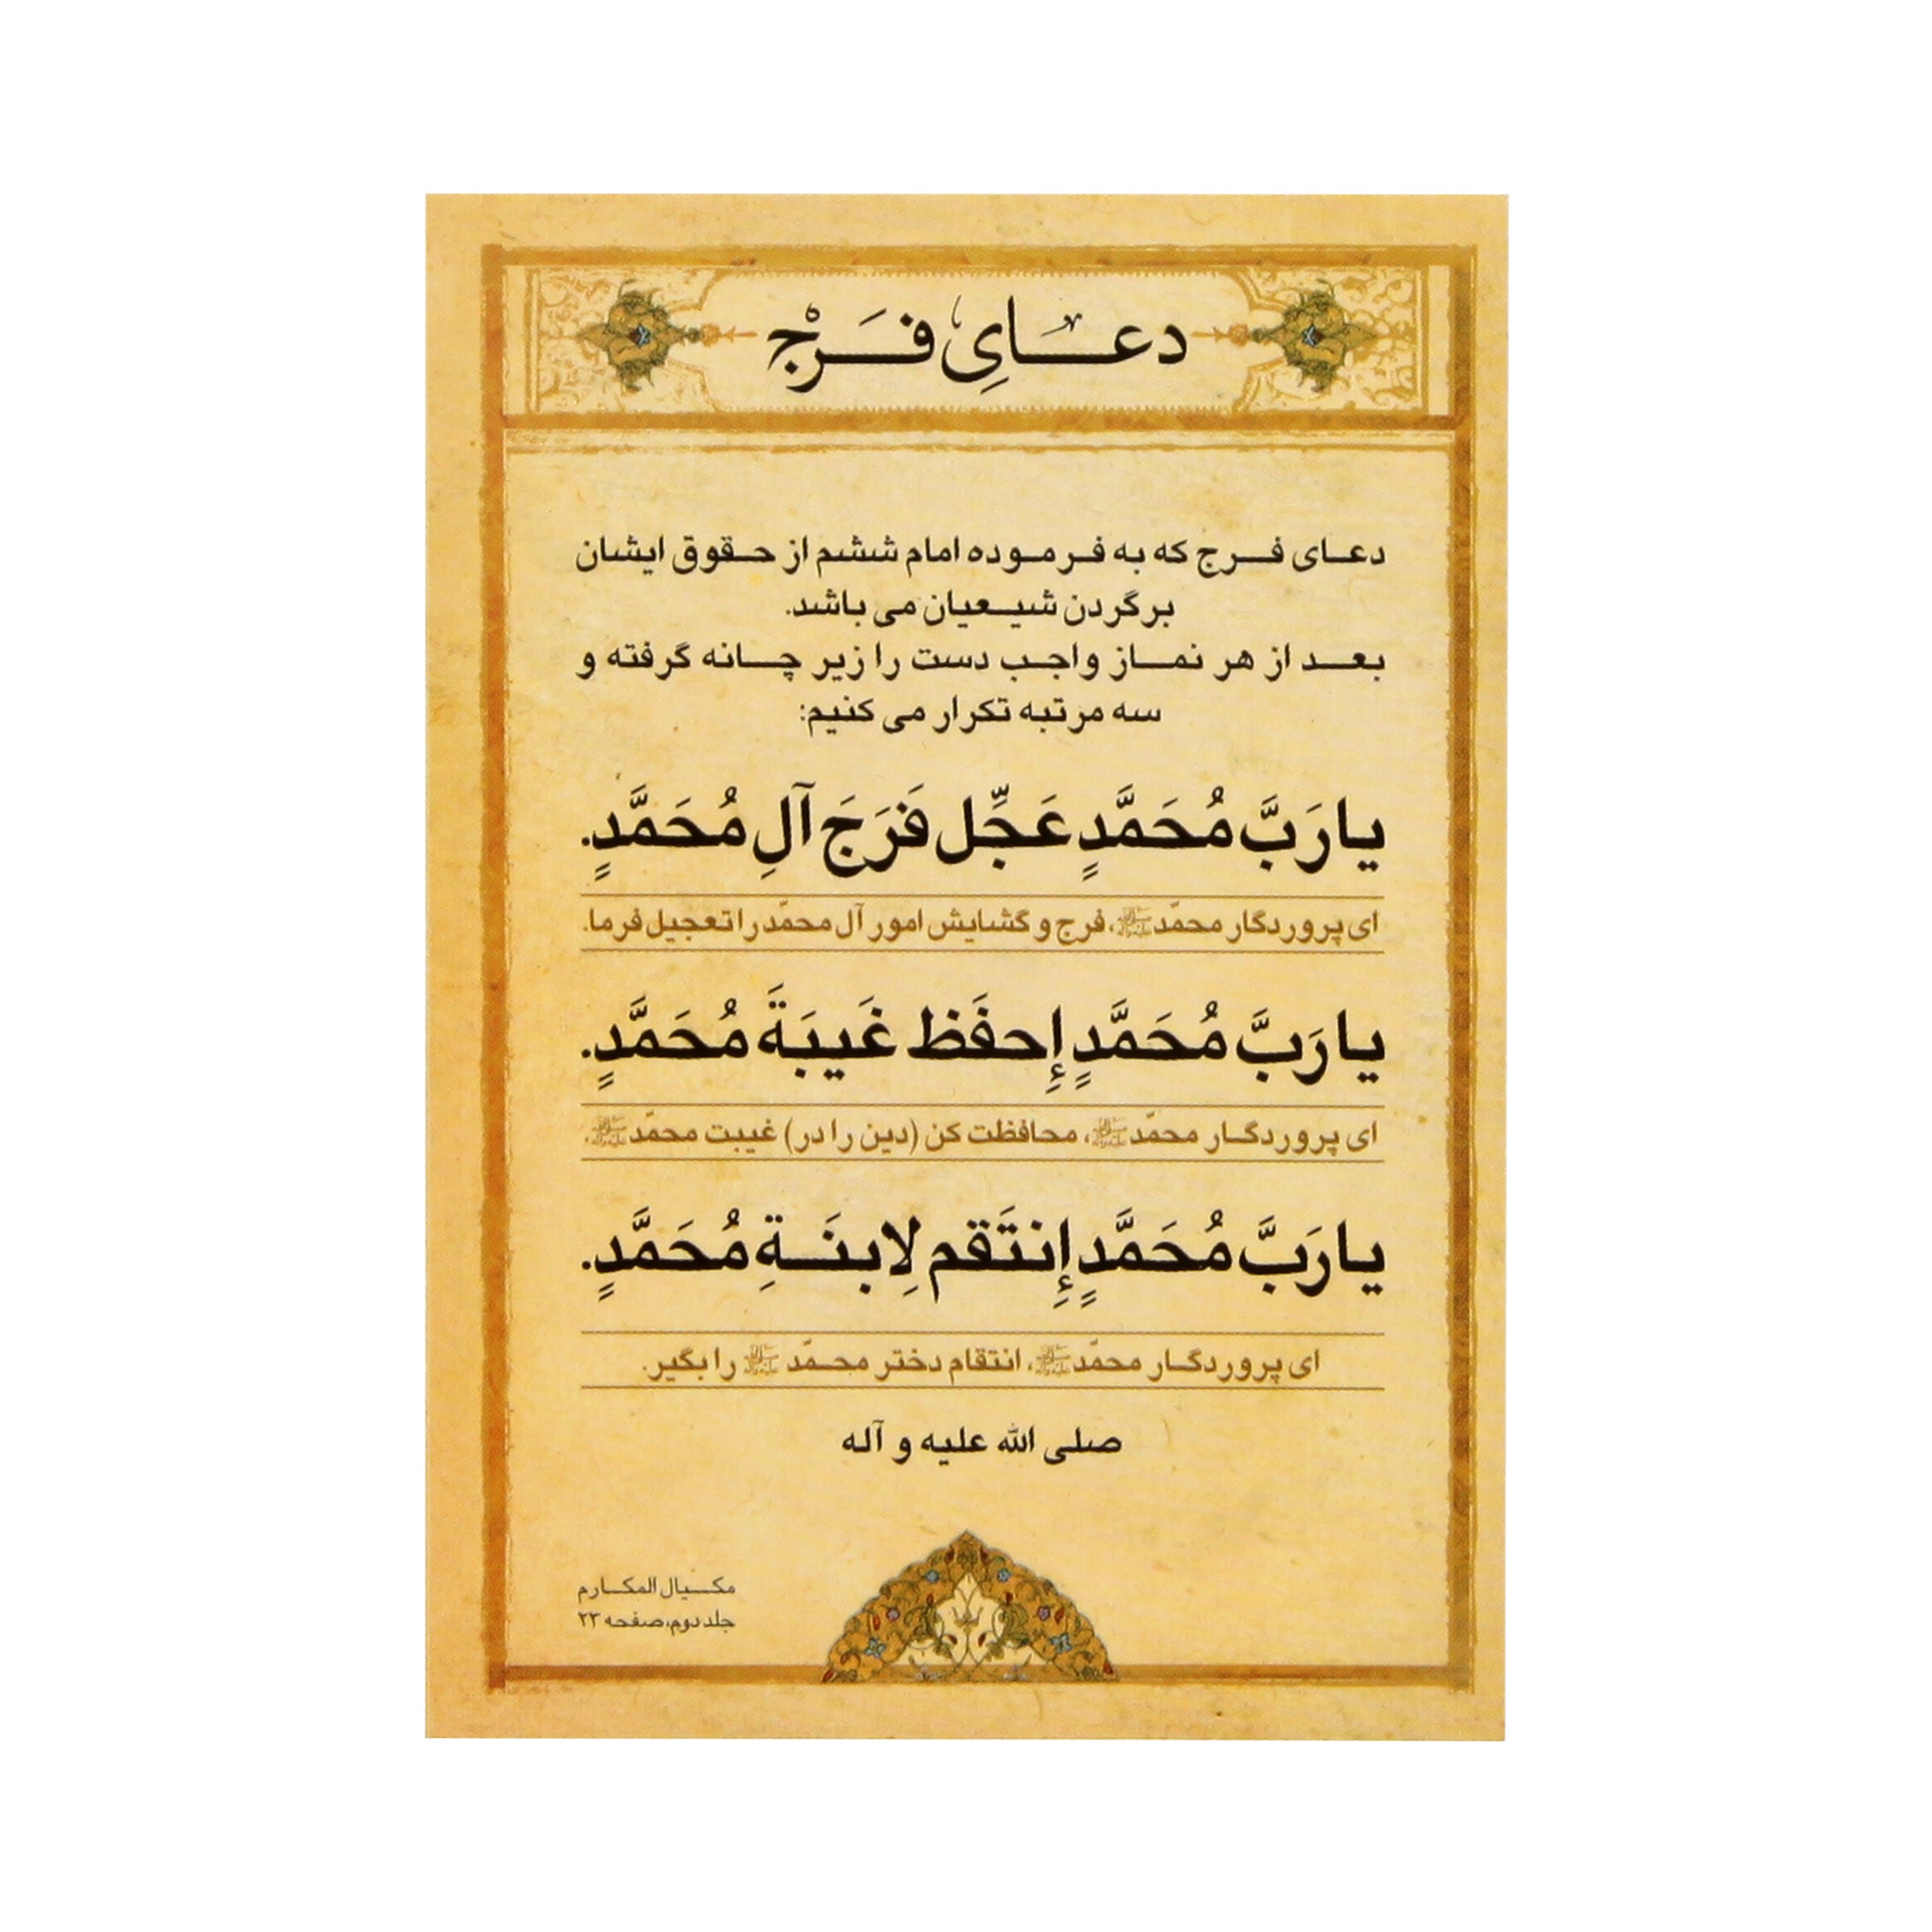 دعایِ فَرَجْ
دعای فرج که به فرموده امام ششم از حقوق ایشان
بر گردن شیعیان می باشد.
بعد از هر نماز واجب دست را زیر چانه گرفته و
سه مرتبه تکرار می کنیم:
یا رَبَّ مُحَمَّدٍ عَجِّل فَرَجَ آلِ مُحَمَّدٍ.
ای پروردگار محمّد ﷺ، فرج و گشایش امور آل محمّد را تعجیل فرما.
یا رَبَّ مُحَمَّدٍ إِحفَظ غَیبَةَ مُحَمَّدٍ.
ای پروردگار محمّد ﷺ، محافظت کن (دین را در) غیبت محمّد ﷺ،
یا رَبَّ مُحَمَّدٍ إِنتَقم لِابنَةِ مُحَمَّدٍ.
ای پروردگار محمّد ﷺ، انتقام دختر محمّد ﷺ را بگیر.
صلی الله علیه و آله
مکیال المکارم
جلد دوم، صفحه ۲۳